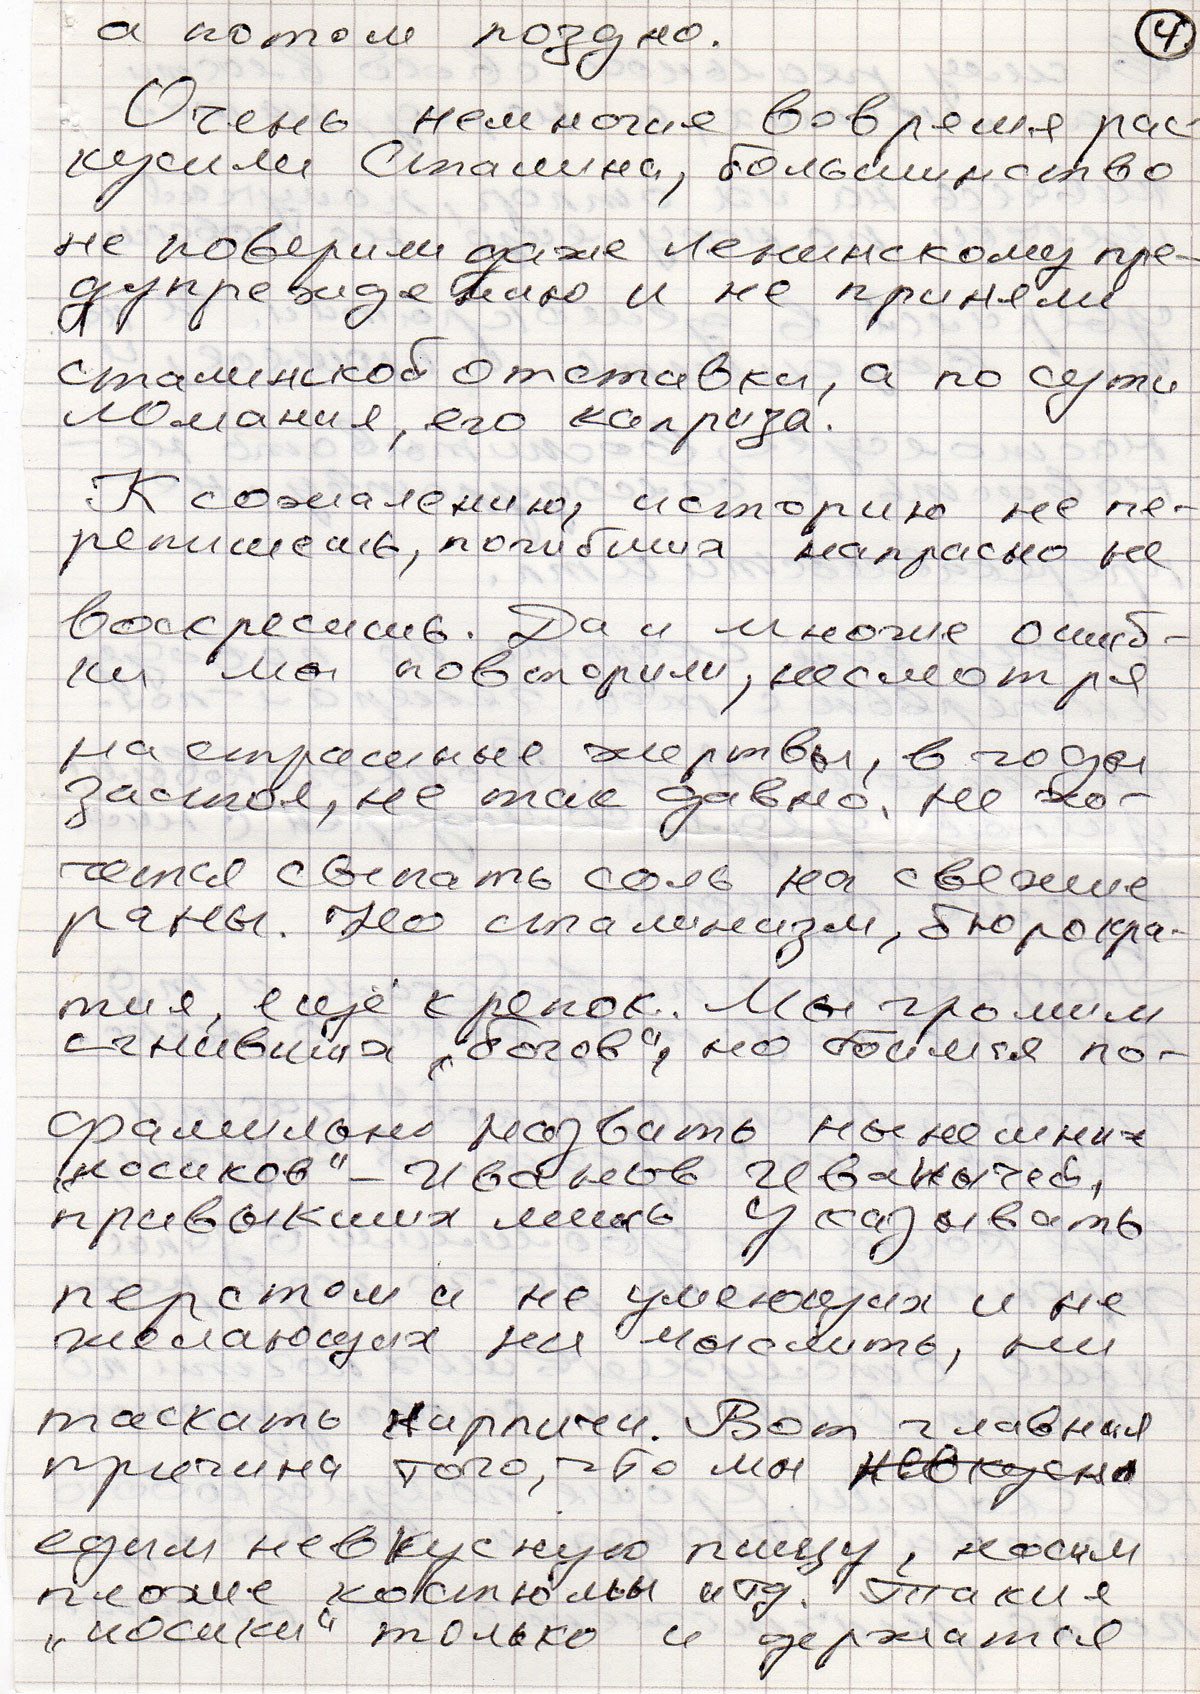 а потом поздно.
4
Очень немногие вовремя рас-
кусили Сталина, большинство
не поверили даже ленинскому пре-
дупреждению и не приняли
сталинской отставки, а по сути
ломания, его каприза.
К сожалению, историю не пе-
репишешь, погибших напрасно не
воскресишь. Да и многие ошиб-
ки мы повторили, несмотря
на страшные жертвы, в годы
застоя, не так давно. Не хо-
чется сыпать соль на свежие
раны. Но сталинизм, бюрокра-
тия, ещё крепок. Мы громим
сгнивших „богов“, но боимся по-
фамильно назвать нынешних
„носиков“ – Иванов Иванычей,
привыкших лишь указывать
перстом и не умеющих и не
желающих ни мыслить, ни
таскать кирпичи. Вот главная
причина того, что мы невкусно
едим невкусную пищу, носим
плохие костюмы итд. Такие
„носики“ только и держатся